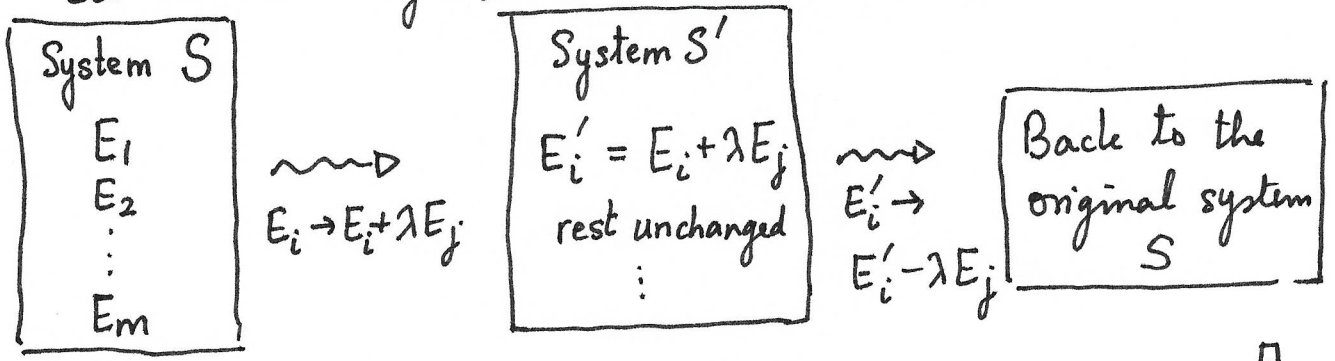 System S
E₁
E₂
⋮
Eₘ
Eᵢ → Eᵢ + λEⱼ
System S′
Eᵢ′ = Eᵢ + λEⱼ
rest unchanged
⋮
Eᵢ′ →
Eᵢ′ − λEⱼ
Back to the
original system
S